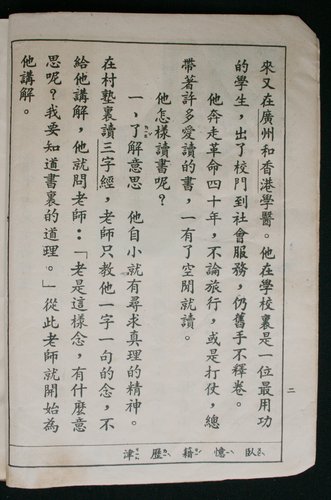 來又在廣州和香港學醫。他在學校裏是一位最用功
的學生，出了校門到社會服務，仍舊手不釋卷。
他奔走革命四十年，不論旅行，或是打仗，總
帶著許多愛讀的書，一有了空閒就讀。
他怎樣讀書呢？
一、了解意思　他自小就有尋求真理的精神。
在村塾裏讀三字經，老師只教他一字一句的念，不
給他講解，他就問老師：「老是這樣念，有什麼意
思呢？我要知道書裏的道理。」從此老師就開始為
他講解。
二
臥憶籍歷津